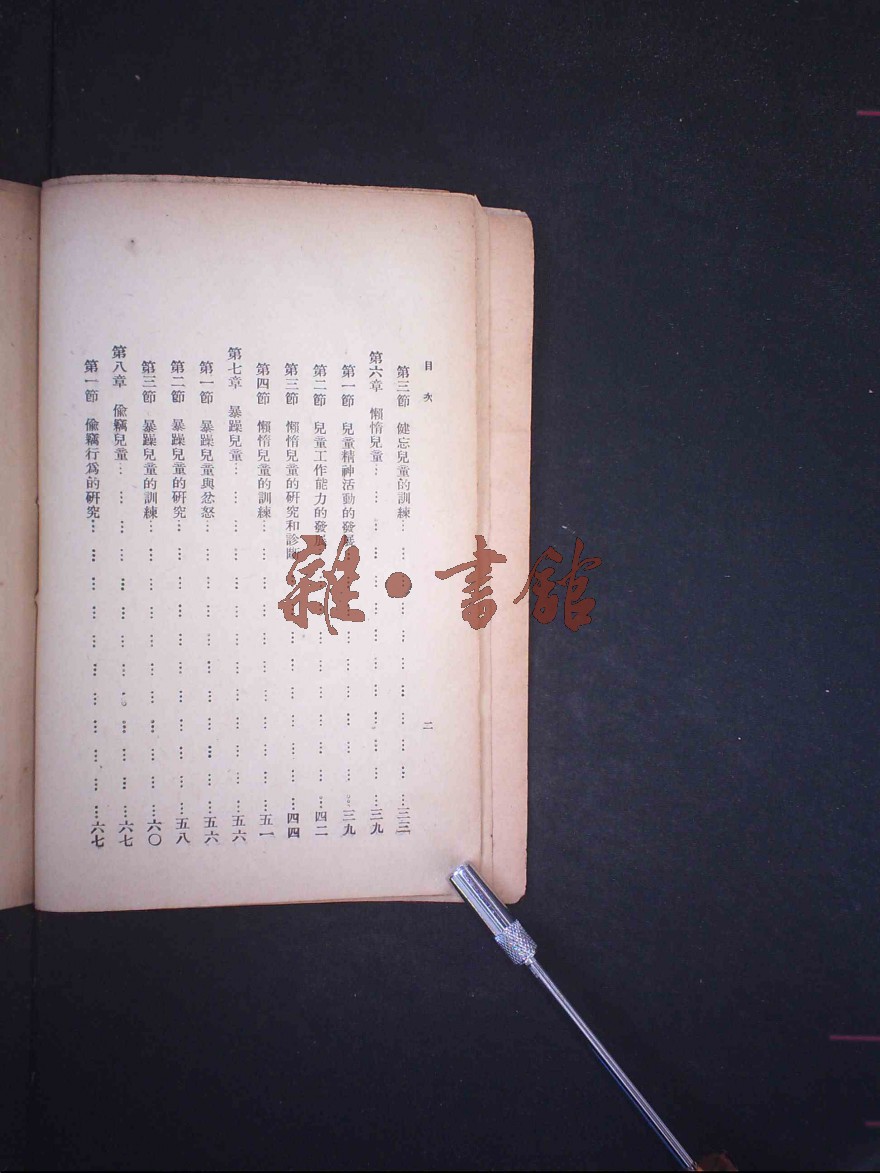 目次
二
第三節 健忘兒童的訓練…………三三
第六章 懶惰兒童…………三九
第一節 兒童精神活動的發展…………三九
第二節 兒童工作能力的發展…………四二
第三節 懶惰兒童的研究和診斷…………四四
第四節 懶惰兒童的訓練…………五一
第七章 暴躁兒童…………五六
第一節 暴躁兒童與忿怒…………五六
第二節 暴躁兒童的研究…………五八
第三節 暴躁兒童的訓練…………六〇
第八章 偸竊兒童…………六七
第一節 偸竊行爲的研究…………六七
雜·書館